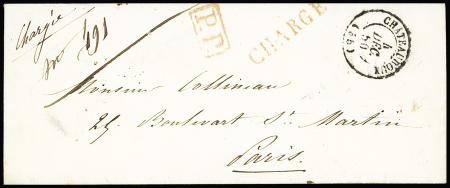 Chargée
No 491
P.P.
CHARGÉ
CHATEAUROUX (35)
4
DEC.
Monsieur Collineau
25, Boulevart St Martin
Paris.